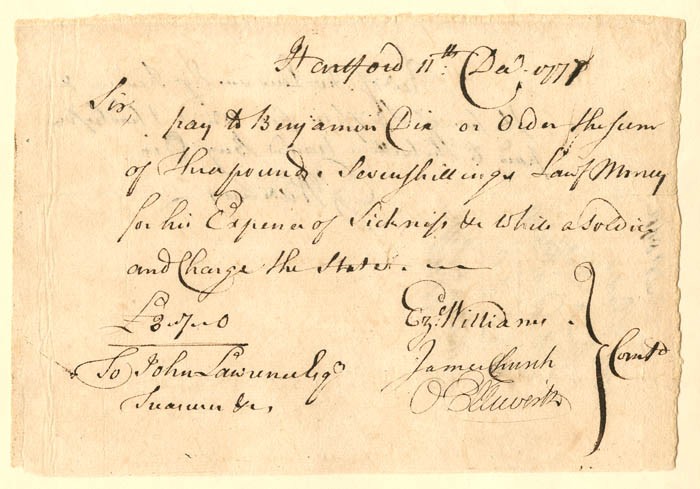 Hartford 11th. Decr. 1777
Sir,
pay to Benjamin Dix or Order the sum
of Three pounds. Seven shillings Lawf. Money
for his Expence of Sickness &c while a Soldier
and Charge the State.
£3..7..0
Ezl. Williams
James Church
Comtt
To John Lawrence Esqr
Treasurer &c.